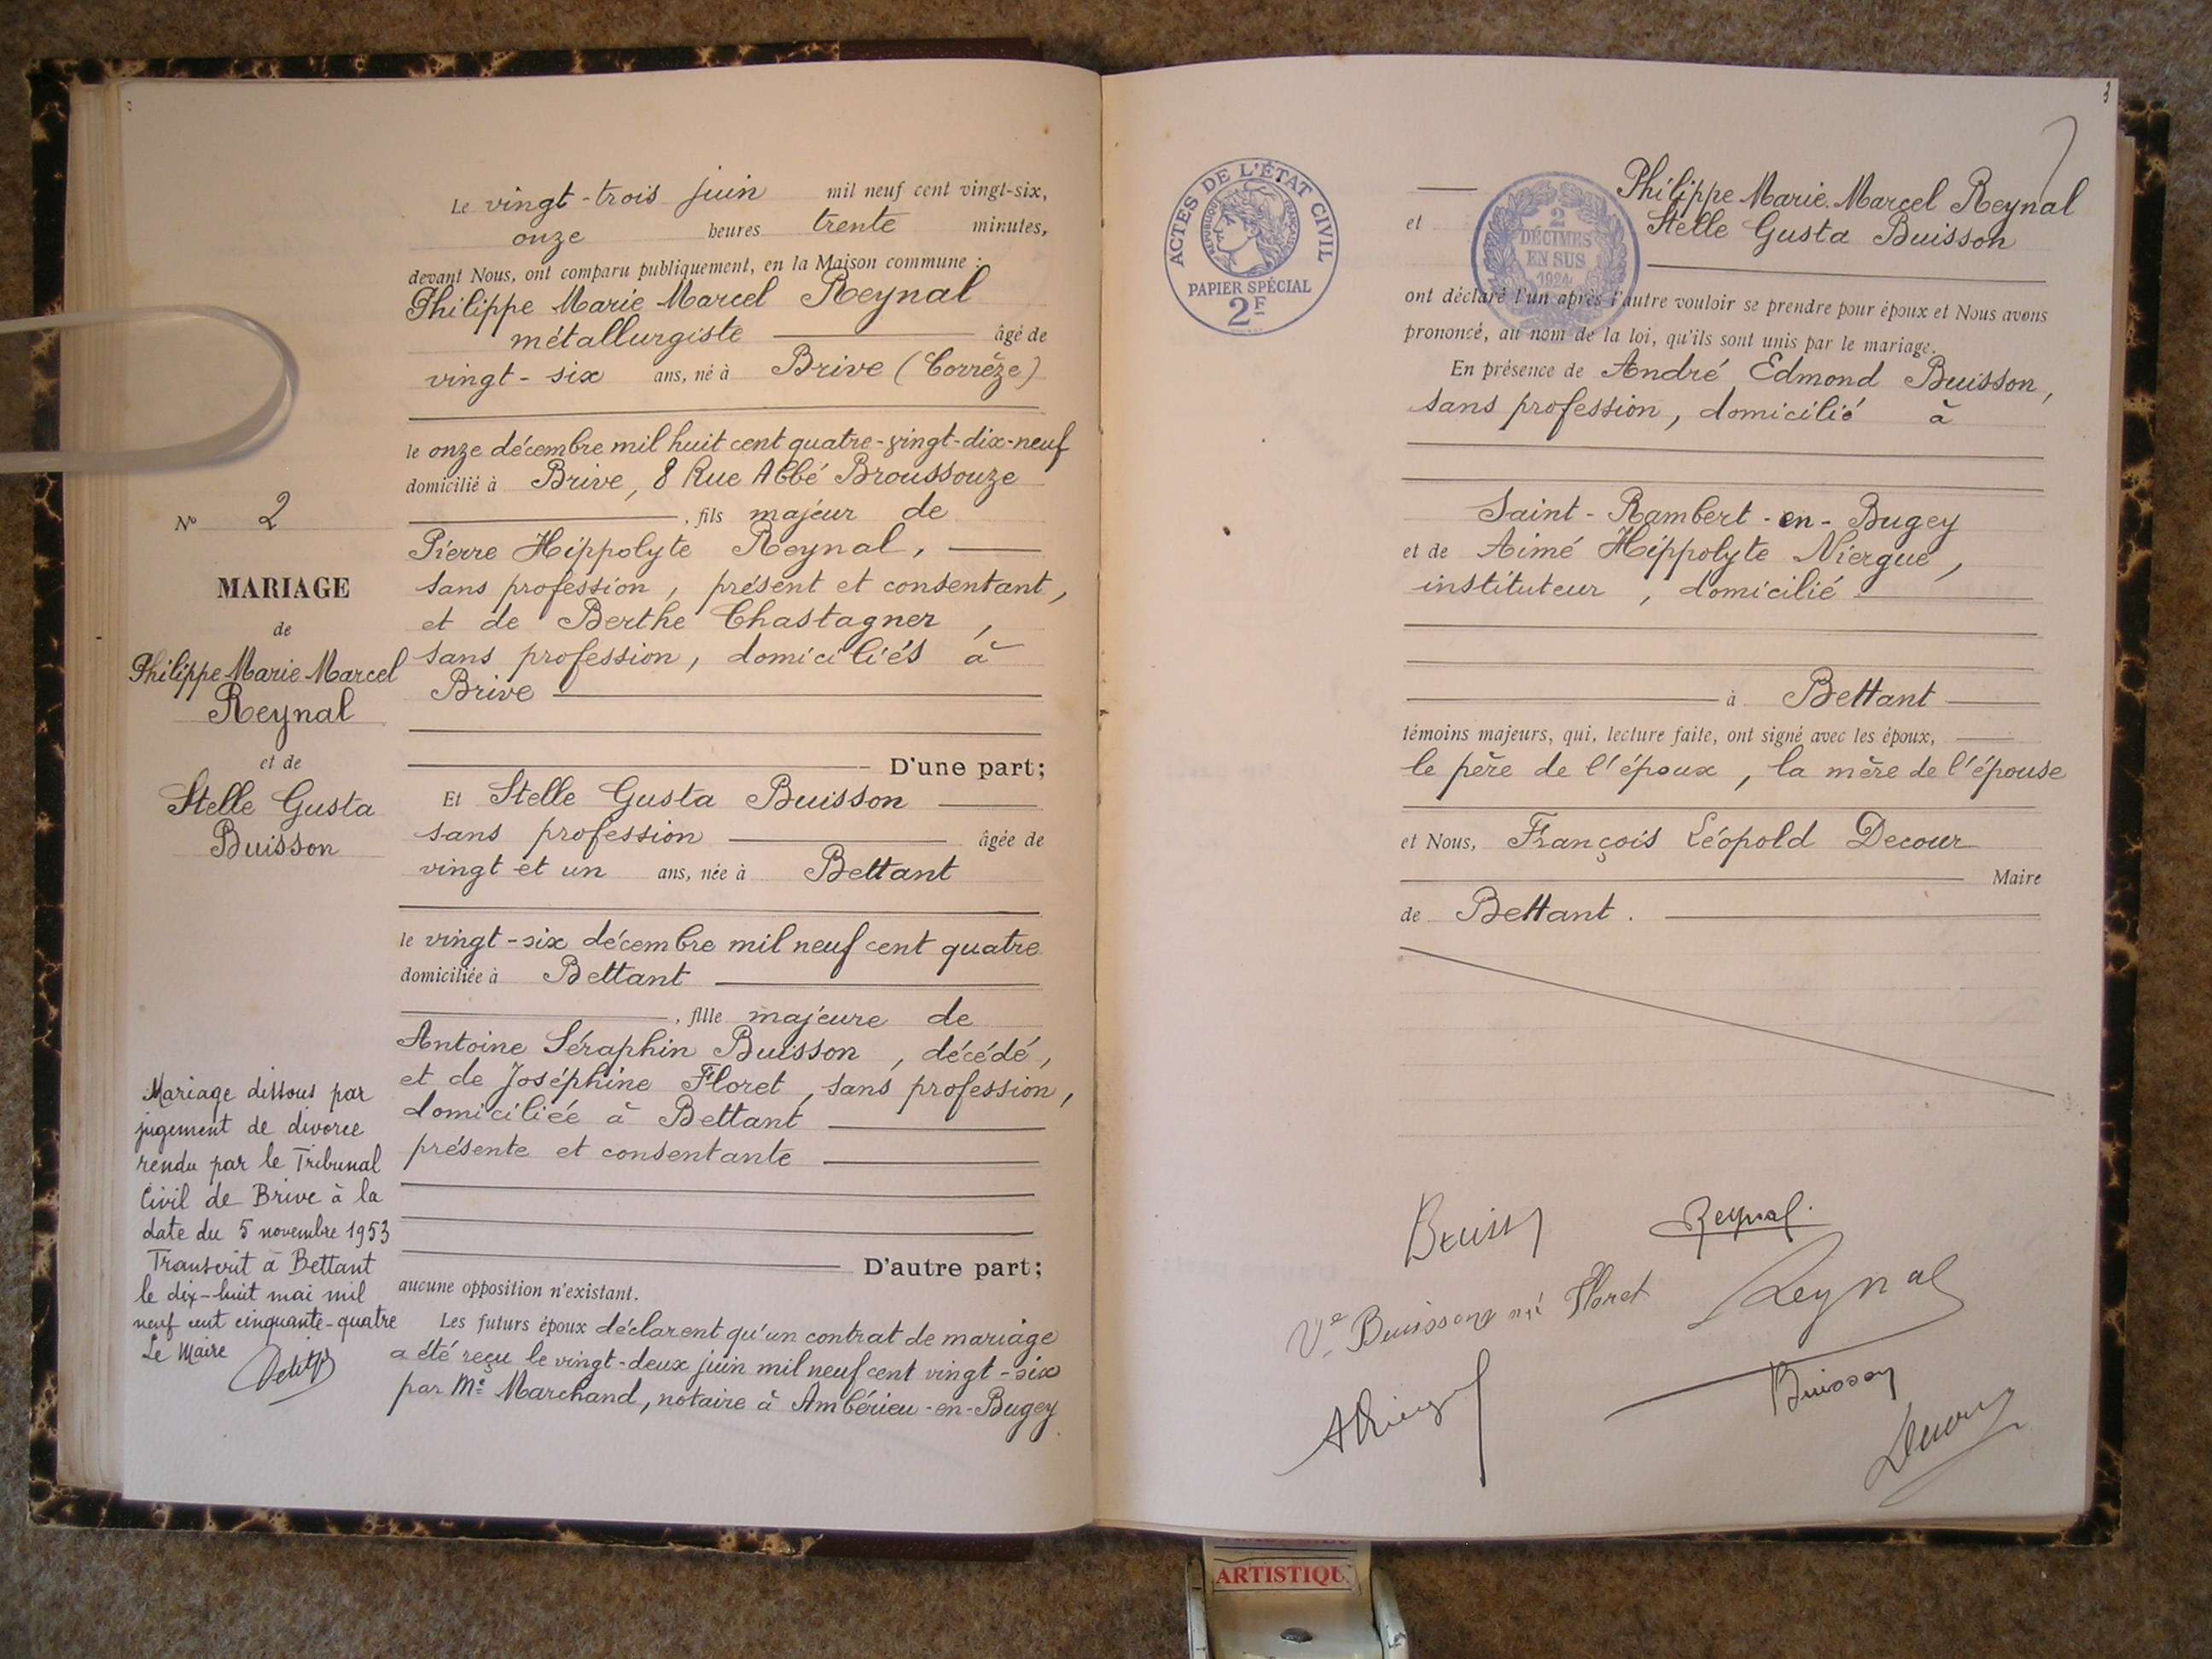 Nº 2
MARIAGE
de
Philippe Marie Marcel
Reynal
et de
Stelle Gusta
Buisson
Mariage dissous par
jugement de divorce
rendu par le Tribunal
Civil de Brive à la
date du 5 novembre 1953
Transcrit à Bettant
le dix-huit mai mil
neuf cent cinquante-quatre
Le Maire
Le vingt-trois juin mil neuf cent vingt-six,
onze heures trente minutes,
devant Nous, ont comparu publiquement, en la Maison commune :
Philippe Marie Marcel Reynal
métallurgiste âgé de
vingt-six ans, né à Brive (Corrèze)
le onze décembre mil huit cent quatre-vingt-dix-neuf
domicilié à Brive, 8 Rue Abbé Broussouze
, fils majeur de
Pierre Hippolyte Reynal,
sans profession, présent et consentant,
et de Berthe Chastagner,
sans profession, domiciliés à
Brive
D'une part;
Et Stelle Gusta Buisson
sans profession âgée de
vingt et un ans, née à Bettant
le vingt-six décembre mil neuf cent quatre
domiciliée à Bettant
, fille majeure de
Antoine Séraphin Buisson, décédé,
et de Joséphine Floret, sans profession,
domiciliée à Bettant
présente et consentante
D'autre part;
aucune opposition n'existant.
Les futurs époux déclarent qu'un contrat de mariage
a été reçu le vingt-deux juin mil neuf cent vingt-six
par Me Marchand, notaire à Ambérieu-en-Bugey.
3
ACTES DE L'ÉTAT CIVIL
RÉPUBLIQUE FRANÇAISE
PAPIER SPÉCIAL
2F
2
DÉCIMES
EN SUS
1924
Philippe Marie Marcel Reynal
et Stelle Gusta Buisson
ont déclaré l'un après l'autre vouloir se prendre pour époux et Nous avons
prononcé, au nom de la loi, qu'ils sont unis par le mariage.
En présence de André Edmond Buisson,
sans profession, domicilié à
Saint-Rambert-en-Bugey
et de Aimé Hippolyte Niergue,
instituteur, domicilié
à Bettant
témoins majeurs, qui, lecture faite, ont signé avec les époux,
le père de l'époux, la mère de l'épouse
et Nous, François Léopold Decour
Maire
de Bettant.
Reynal.
Ve Buisson né Floret
Reynal
Buisson
Decour
ARTISTIQU